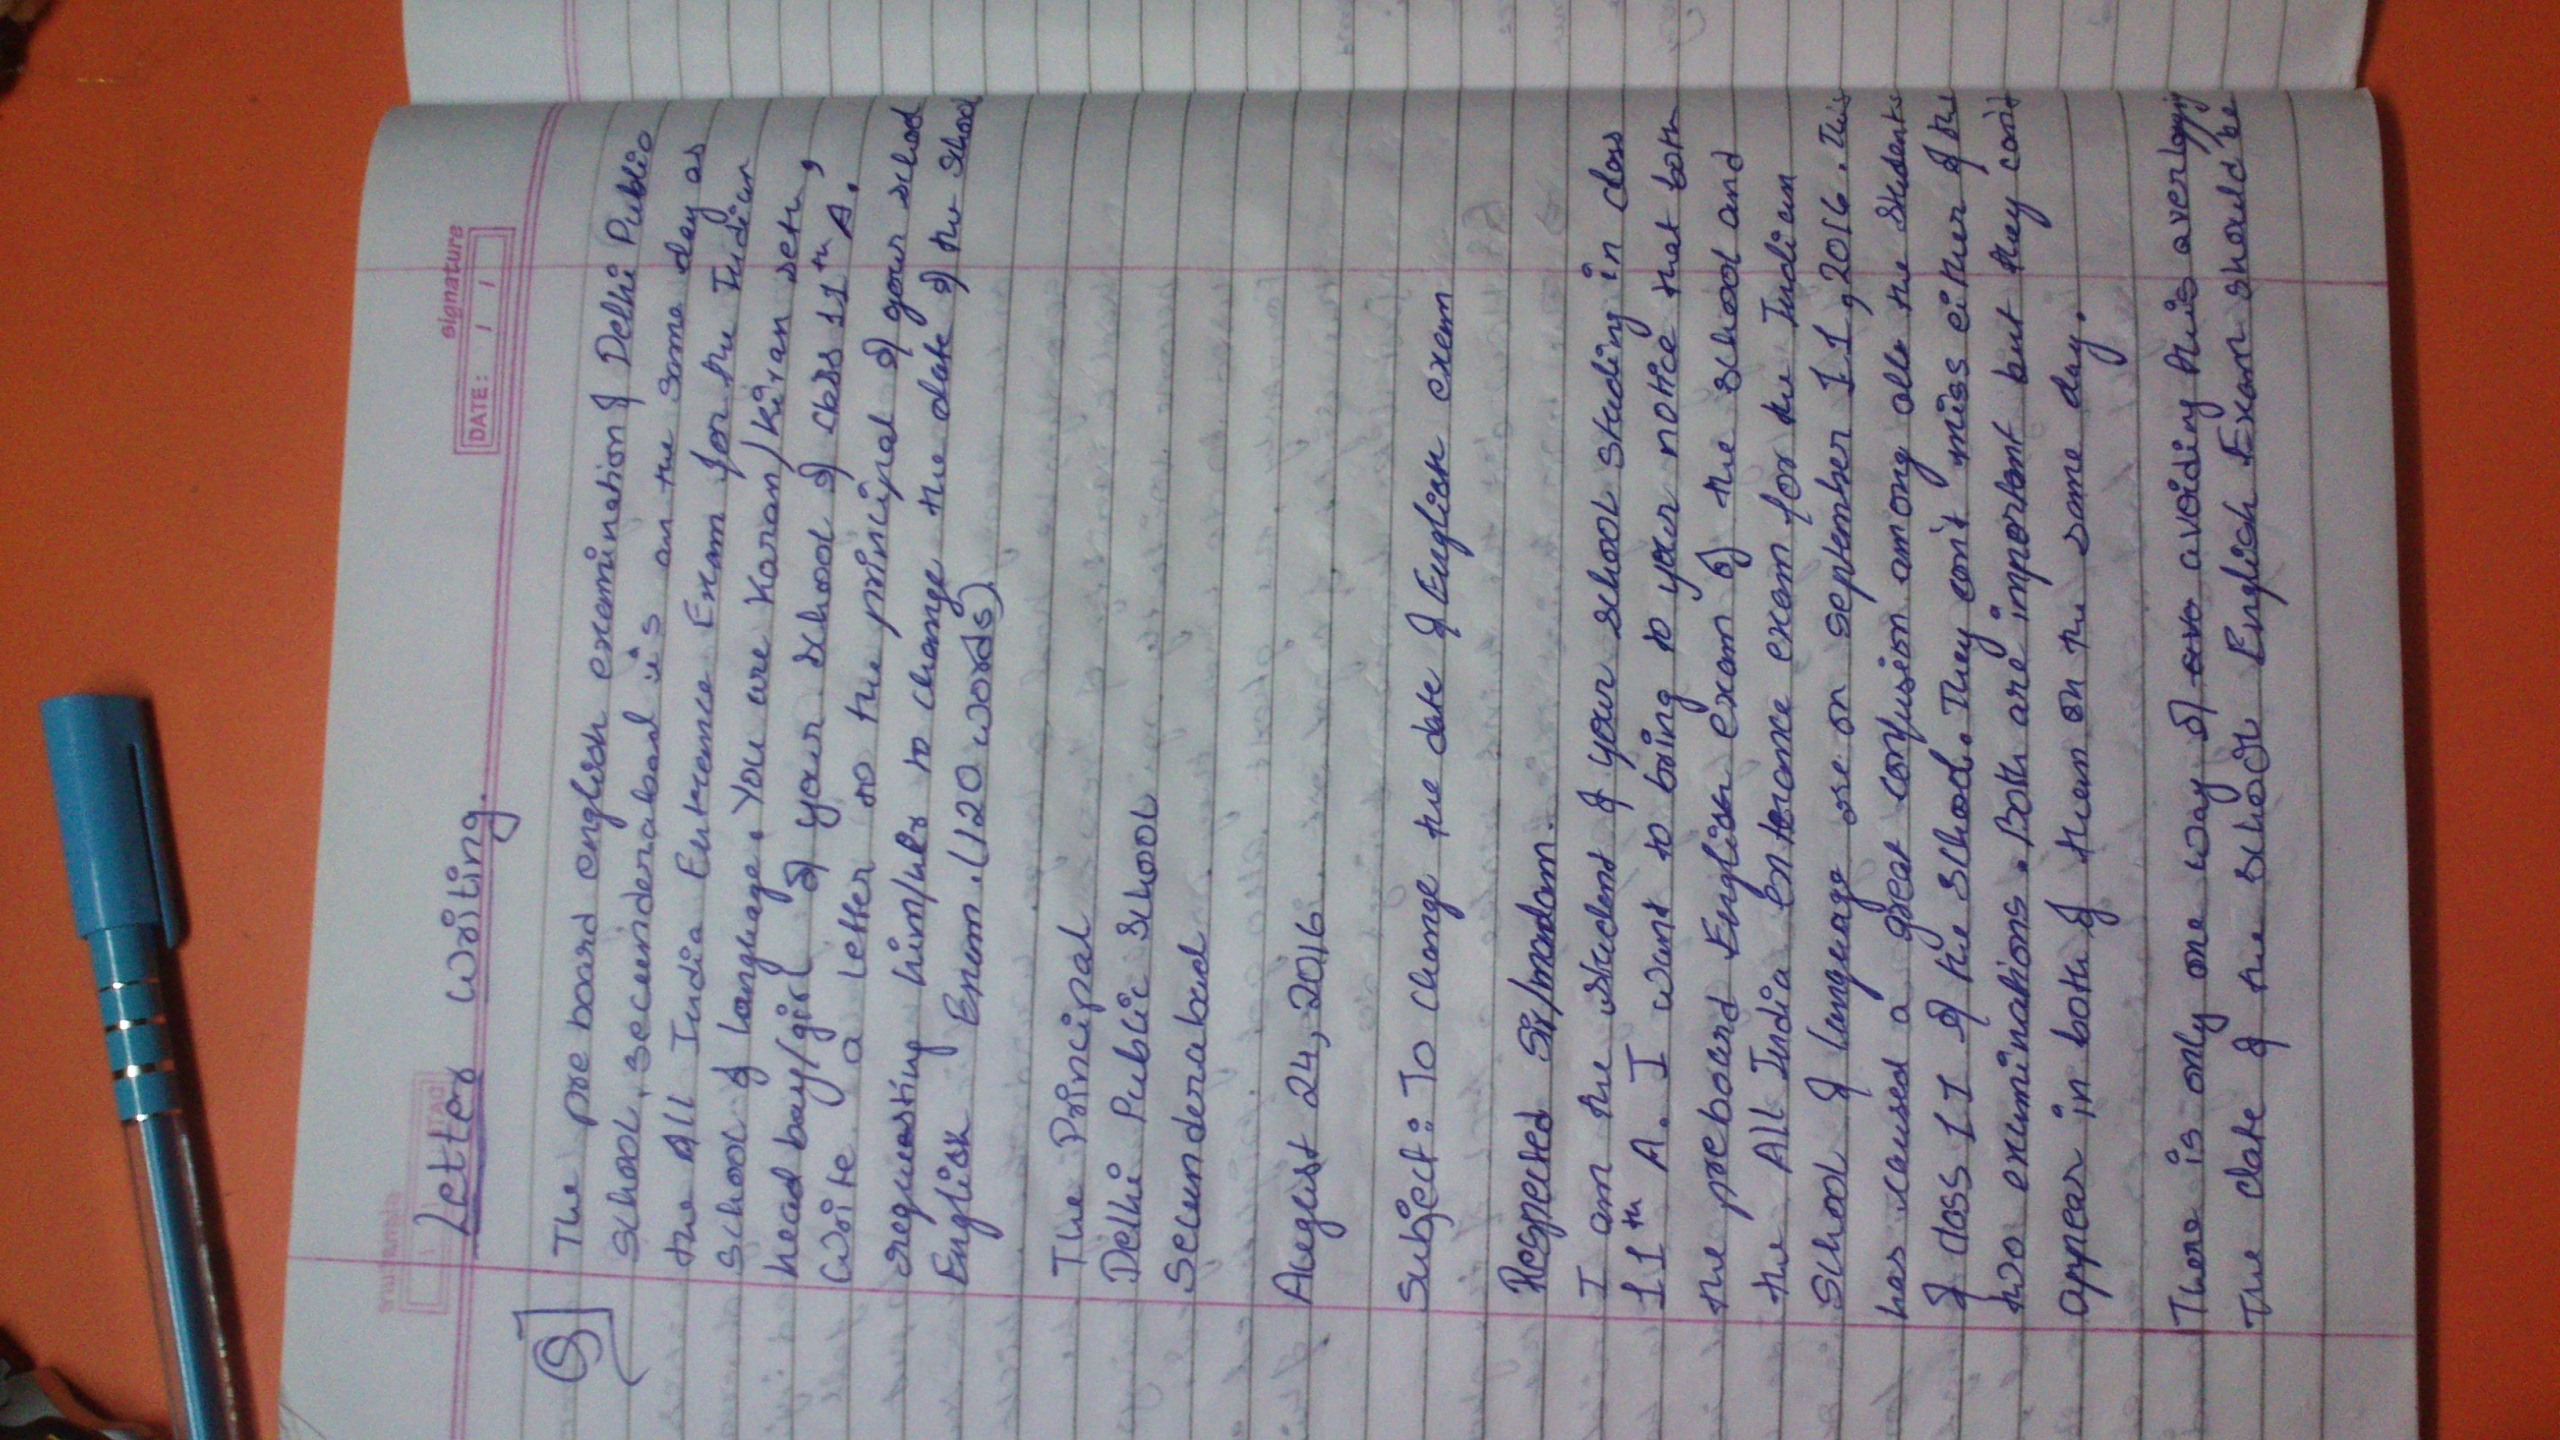 Letter Writing.
signature
DATE: / /
Q] The pre board english examination of Delhi Public
School, secunderabad is on the same day as
the All India Entrance Exam for the Indian
School of language. You are Karan/Kiran seth,
head boy/girl of your school of class 11th A.
Write a letter to the principal of your school
requesting him/her to change the date of the School
English Exam. (120 words).
The Principal
Delhi Public School
Secunderabad
August 24, 2016
Subject: To change the date of English exam
Respected Sir/madam.
I am the student of your school studing in class
11th A. I want to bring to your notice that both
the preboard English exam of the school and
the All India enterance exam for the Indian
School of language are on september 11, 2016. This
has caused a great confusion among all the students
of class 11 of the School. They can't miss either of the
two examinations. Both are important but they can't
appear in both of them on the same day.
There is only one way of avoiding this overlapping
The date of the school English Exam should be